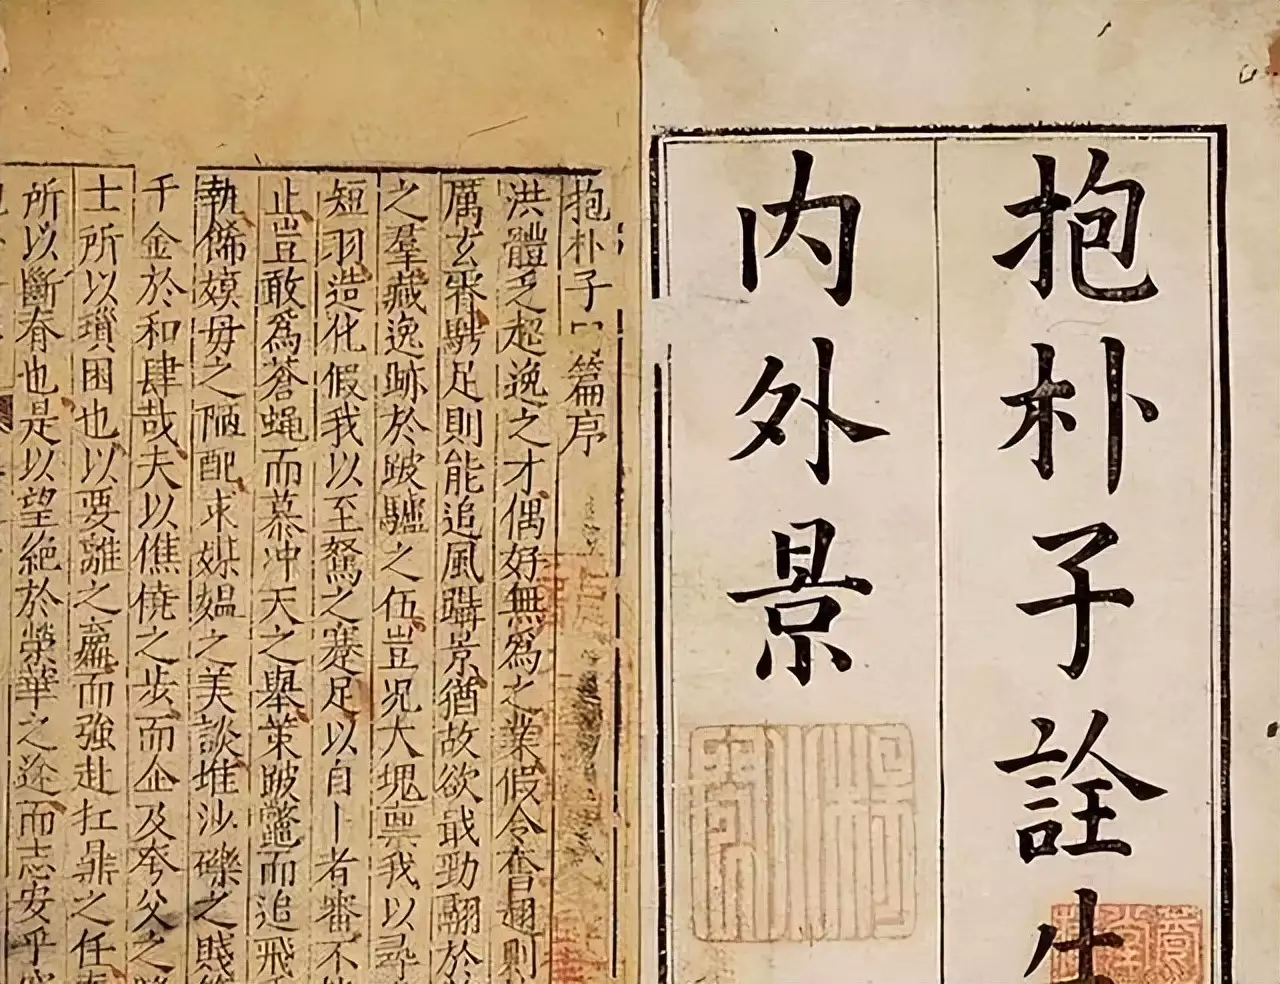 抱朴子詮
内外景
抱朴子
篇序
洪體乏超逸之才偶好無爲之業假令奮翅則
厲玄霄騁足則能追風躡景猶故欲戢勁翮於
之羣藏逸跡於跛驢之伍豈況大塊禀我以尋
短羽造化假我以至駑之蹇足以自卜者審不
止豈敢爲蒼蝇而慕冲天之舉策跛鼈而追飛
執僬嫫母之陋配求媒媼之美談堆沙礫之賤
千金於和肆哉夫以僬僥之步而企及夸父之
士所以瑣困也以要離之羸而強赴扛鼎之任
所以斷脊也是以望絶於榮華之途而志安乎